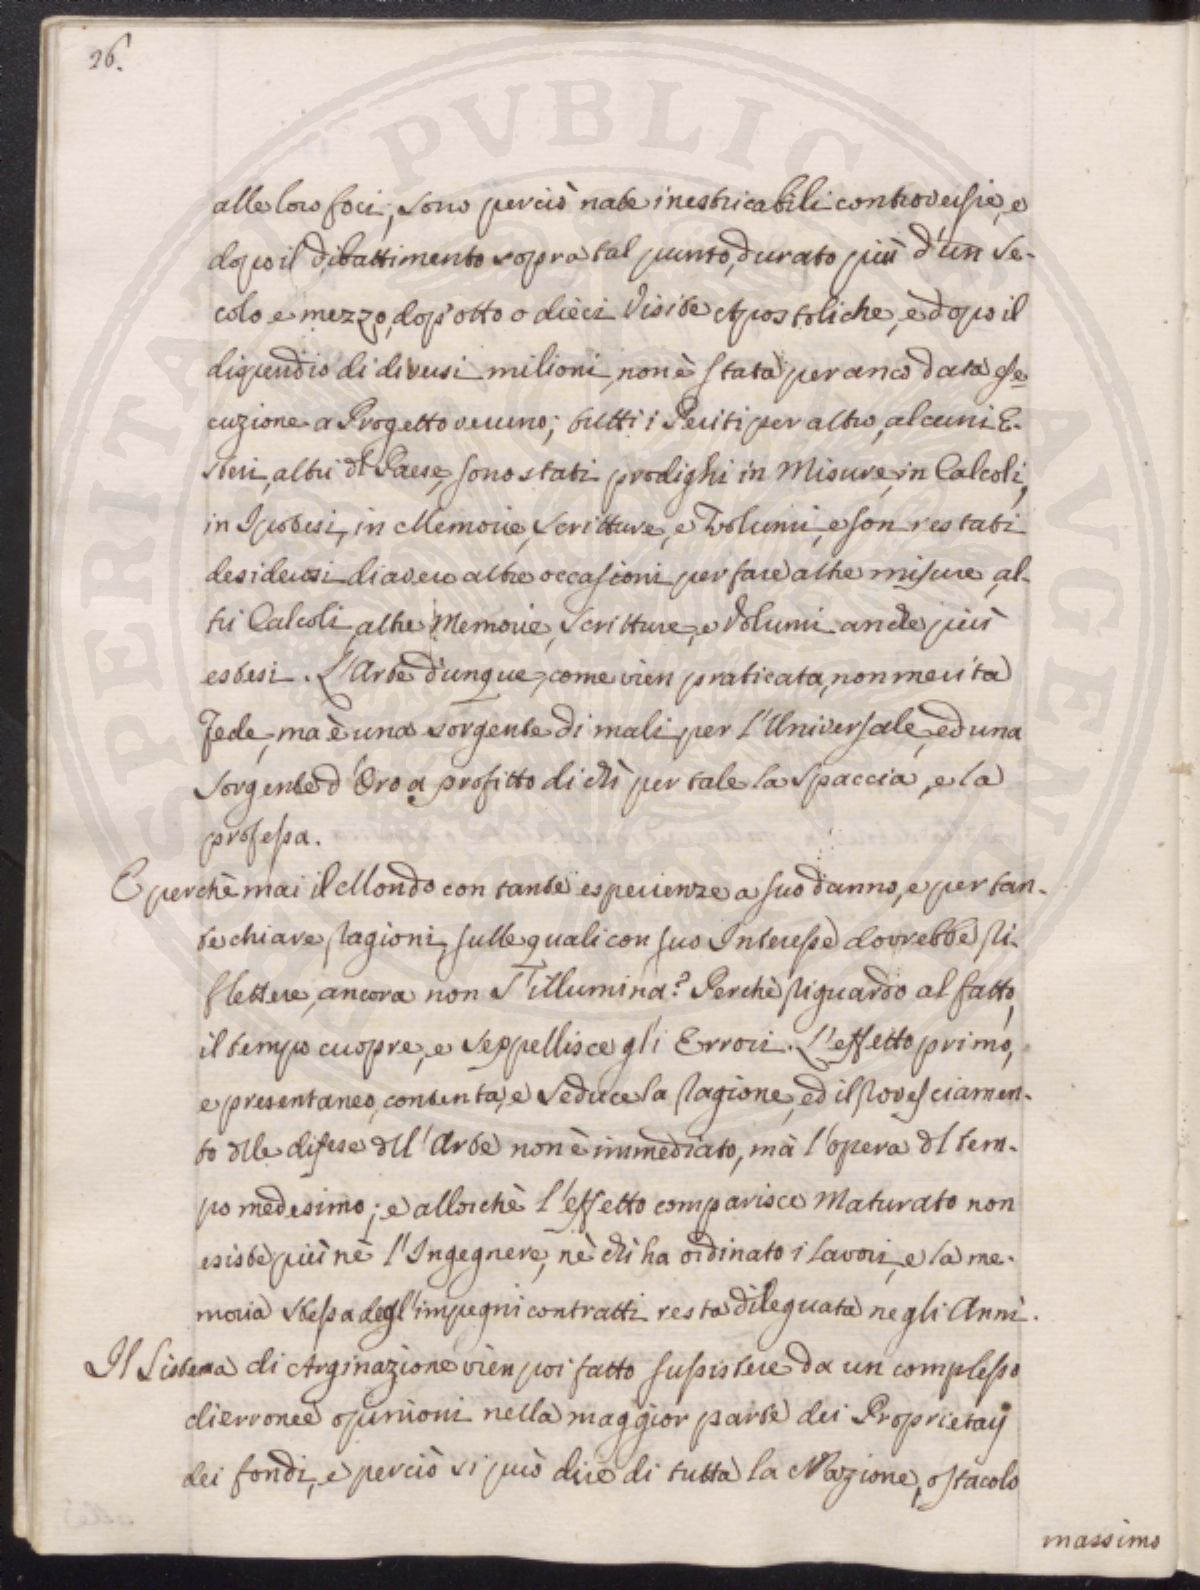 26.
alle loro foci; sono perciò nate inestricabili controversie, e
dopo il dibattimento sopra tal punto, durato più d'un Se-
colo e mezzo, dop'otto o dieci Visite Apostoliche, e dopo il
dispendio di diversi milioni, non è stata per anco data ese-
cuzione a Progetto veruno; tutti i Periti per altro, alcuni E-
steri, altri dl Paese, sono stati prodighi in Misure, in Calcoli,
in Ipotesi, in Memorie, Scritture, e Volumi, e son restati
desiderosi di avere altre occasioni per fare altre misure, al-
tri Calcoli, altre Memorie, Scritture, e Volumi anche più
estesi. L'Arte dunque, come vien praticata, non merita
Fede, ma è una sorgente di mali per l'Universale, ed una
Sorgente d'Oro a profitto di chi per tale la Spaccia, e la
professa.
E perchè mai il Mondo con tante esperienze a suo danno, e per tan-
te chiare ragioni, sulle quali con suo Interesse dovrebbe ri-
flettere, ancora non S'illumina? Perchè riguardo al fatto,
il tempo cuopre, e Seppellisce gli Errori. L'effetto primo,
e presentaneo, contenta, e seduce la ragione, ed il rovesciamen-
to dlle difese dll'Arte non è immediato, mà l'opera dl tem-
po medesimo; e allorchè l'effetto comparisce Maturato non
esiste più nè l'Ingegnere, nè chi ha ordinato i lavori, e la me-
moria stessa degl'impegni contratti resta dileguata negli Anni.
Il Sistema di Arginazione vien poi fatto sussistere da un complesso
di erronee opinioni nella maggior parte dei Proprietarj
dei fondi, e perciò si può dire di tutta la Nazione, ostacolo
massimo
SPERITATE PVBLIC AVGEN